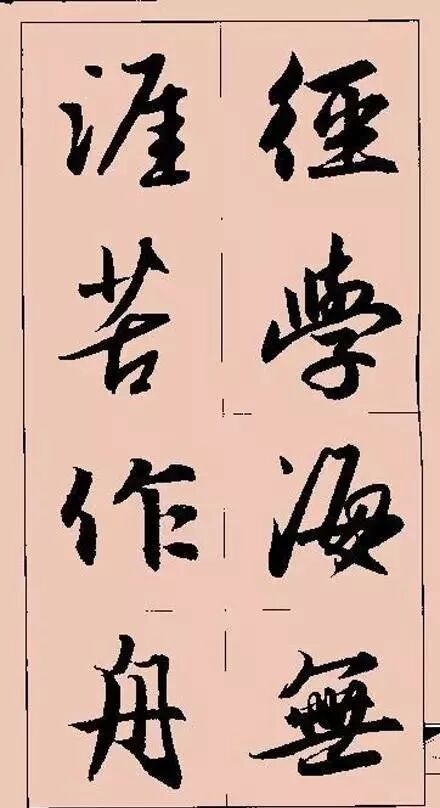 徑學海無
涯苦作舟